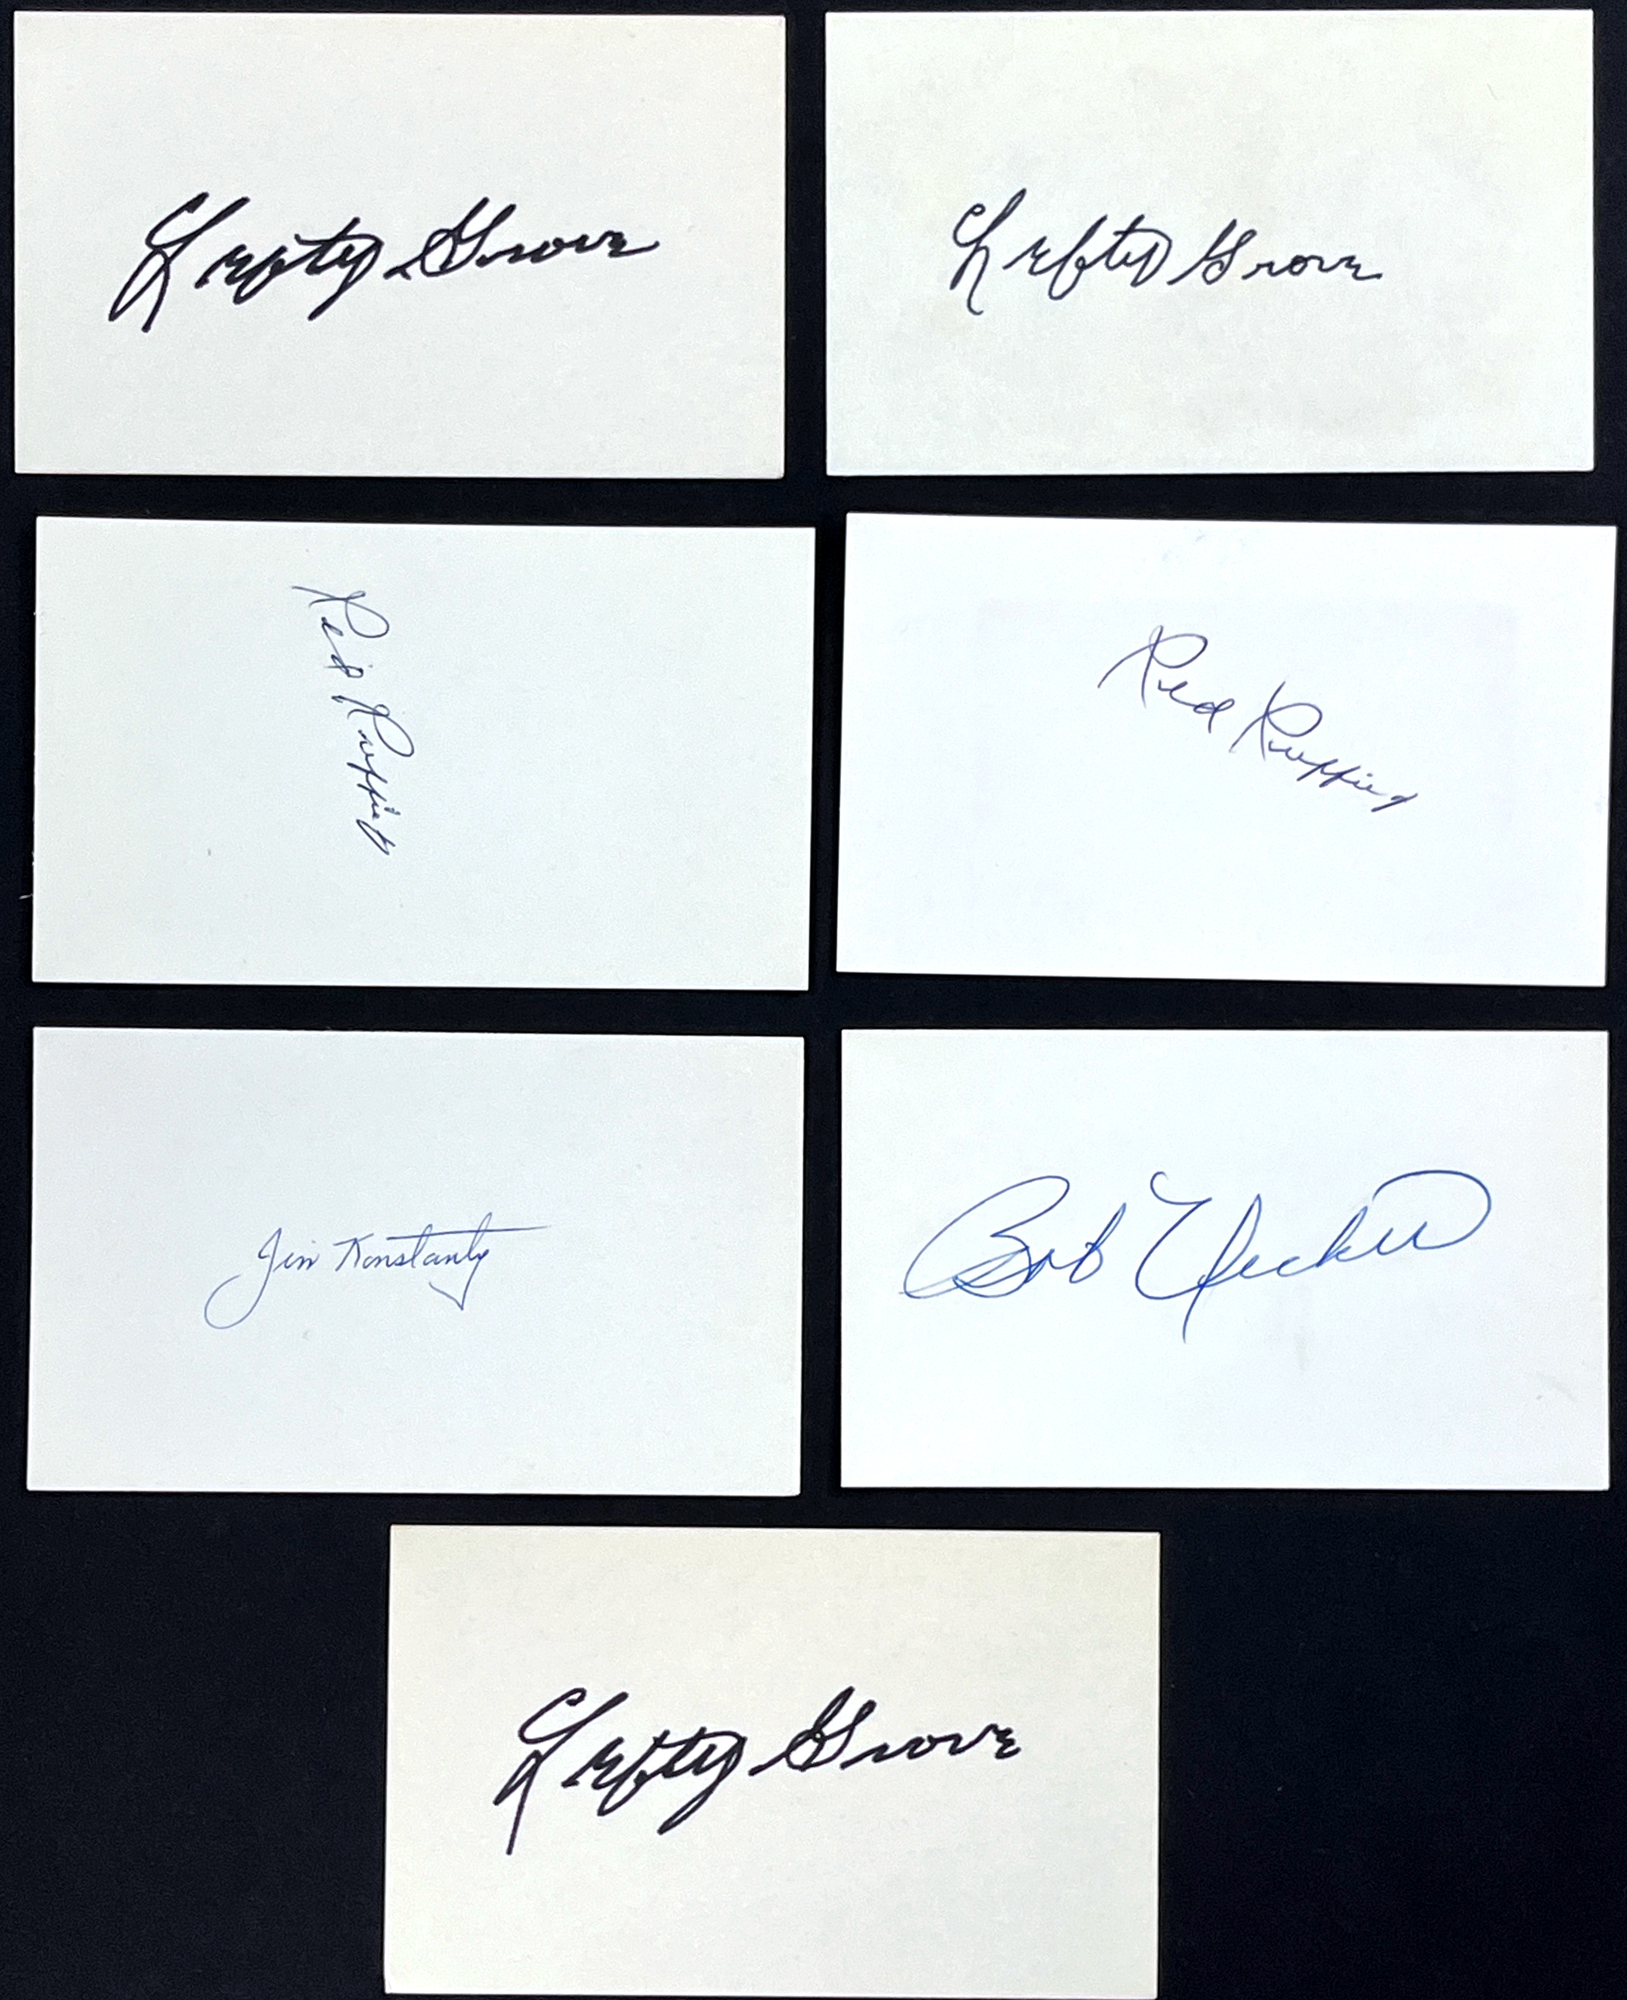 Lefty Grove
Lefty Grove
Red Ruffing
Red Ruffing
Jim Konstanty
Bob Uecker
Lefty Grove